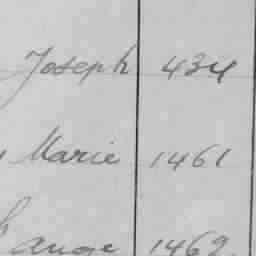 Joseph 434
Marie 1461
ange 1462